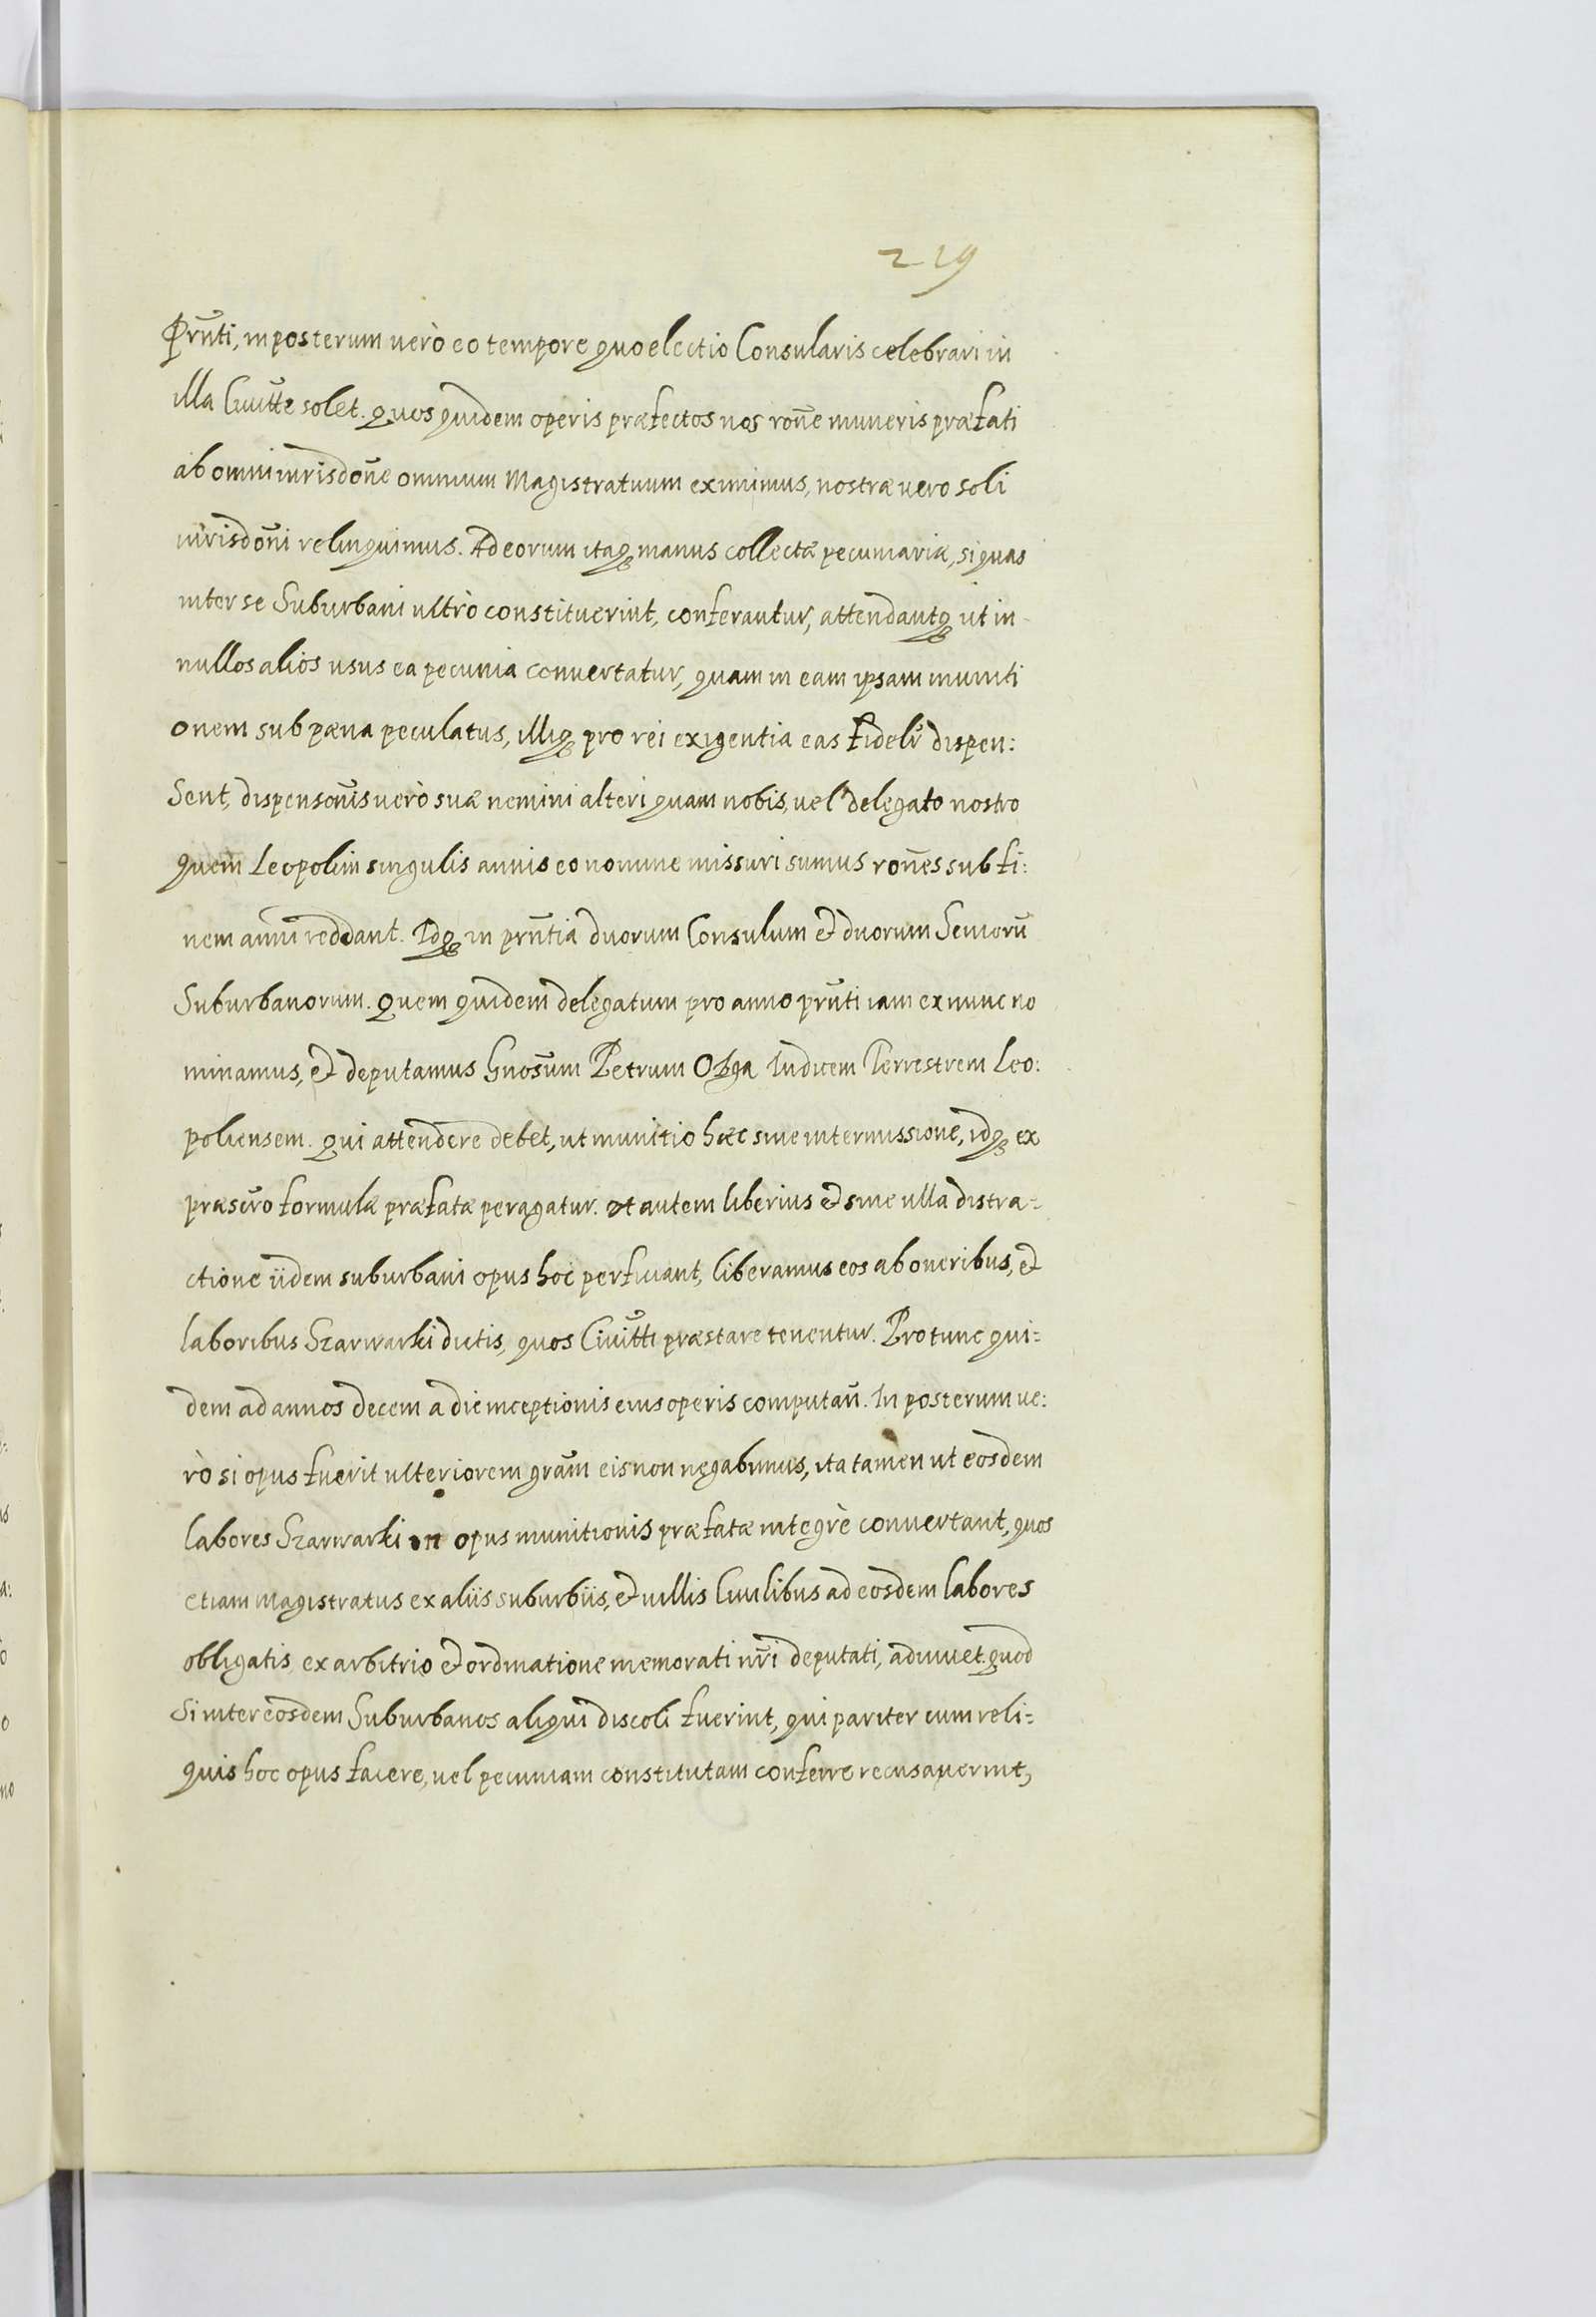 219
Prñti, in posterum verò eo tempore quo electio Consularis celebrari in
illa Ciuitte solet. Quos quidem operis præfectos nos rõne muneris præfati
ab omni iurisdõne omnium Magistratuum eximimus, nostræ vero soli
iurisdõni relinquimus. Ad eorum itaq; manus collectæ pecuniariæ, si quas
inter se Suburbani ultrò constituerint, conferantur, attendantq; ut in
nullos alios usus ea pecunia convertatur, quam in eam ipsam muniti
onem sub pæna peculatus, illiq; pro rei exigentia eas fidelr dispen:
Sent, dispensõnis verò suæ nemini alteri quam nobis, vel delegato nostro
quem Leopolim singulis annis eo nomine missuri sumus rões sub fi:
nem anni reddant. Idq; in prñtia duorum Consulum et duorum Seniorũ
Suburbanorum. Quem quidem delegatum pro anno prñti iam ex nunc no
minamus, et deputamus Gnõsum Petrum Ożga Iudicem Terrestrem Leo:
poliensem. qui attendere debet, ut munitio hæc sine intermissione, idq; ex
præscro formulæ præfatæ peragatur. Ut autem liberius et sine ulla distra=
ctione iidem suburbani opus hoc perficiant, liberamus eos ab oneribus, et
laboribus Szarwarki dictis, quos Ciuitti præstare tenentur. Pro tunc qui=
dem ad annos decem a die inceptionis eius operis computañ. In posterum ve:
rò si opus fuerit ulteriorem grãm eis non negabimus, ita tamen ut eosdem
labores Szarwarki in opus munitionis præfatæ integrè convertant, quos
etiam Magistratus ex aliis suburbiis, et villis Ciuilibus ad eosdem labores
obligatis, ex arbitrio et ordinatione memorati nri deputati, adiuvet. quod
Si inter eosdem Suburbanos aliqui discoli fuerint, qui pariter cum reli=
quis hoc opus facere, vel pecuniam constitutam conferre recusaverint,